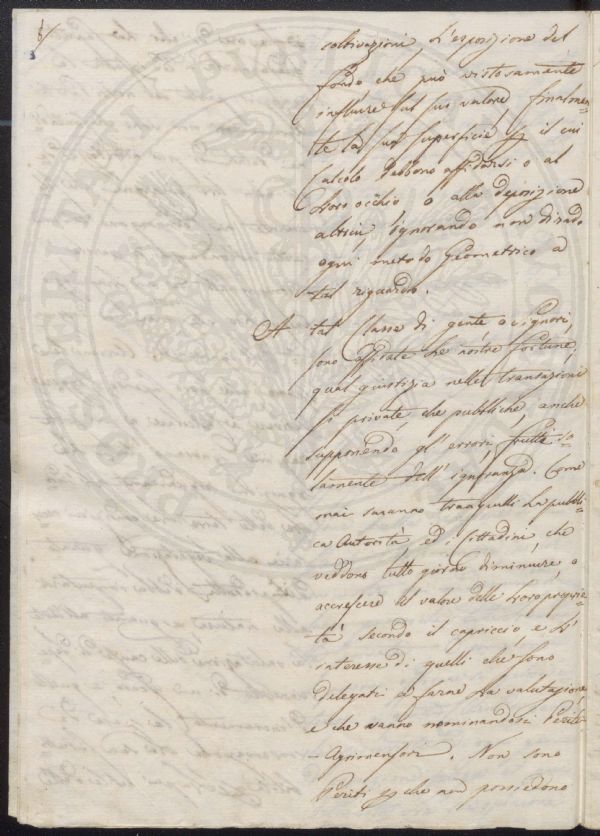 coltivazioni, L'esposizione del
fondo che può vistosamente
influire sul suo valore, finalmen=
te la sua superficie p il cui
Calcolo debbono affidarsi o al
loro occhio o alla deposizione
altrui, ignorando non di rado
ogni metodo Geometrico a
tal riguardo.
A tal Classe di gente o signori,
sono affidate le nostre fortune;
qual giustizia nelle transazioni
sì private, che pubbliche, anche
supponendo gl'errori frutti so=
lamente dell'ignoranza. Come
mai saranno tranquilli la pubbli=
ca Autorità, ed i Cittadini, che
veddono tutto giorno diminuire, o
accrescere il valore delle loro proprie=
tà secondo il capriccio, e l'
interesse di quelli che sono
delegati a farne la valutazione
e che vanno nominandosi Periti
- Agrimensori. Non sono
Periti p che non possiedono